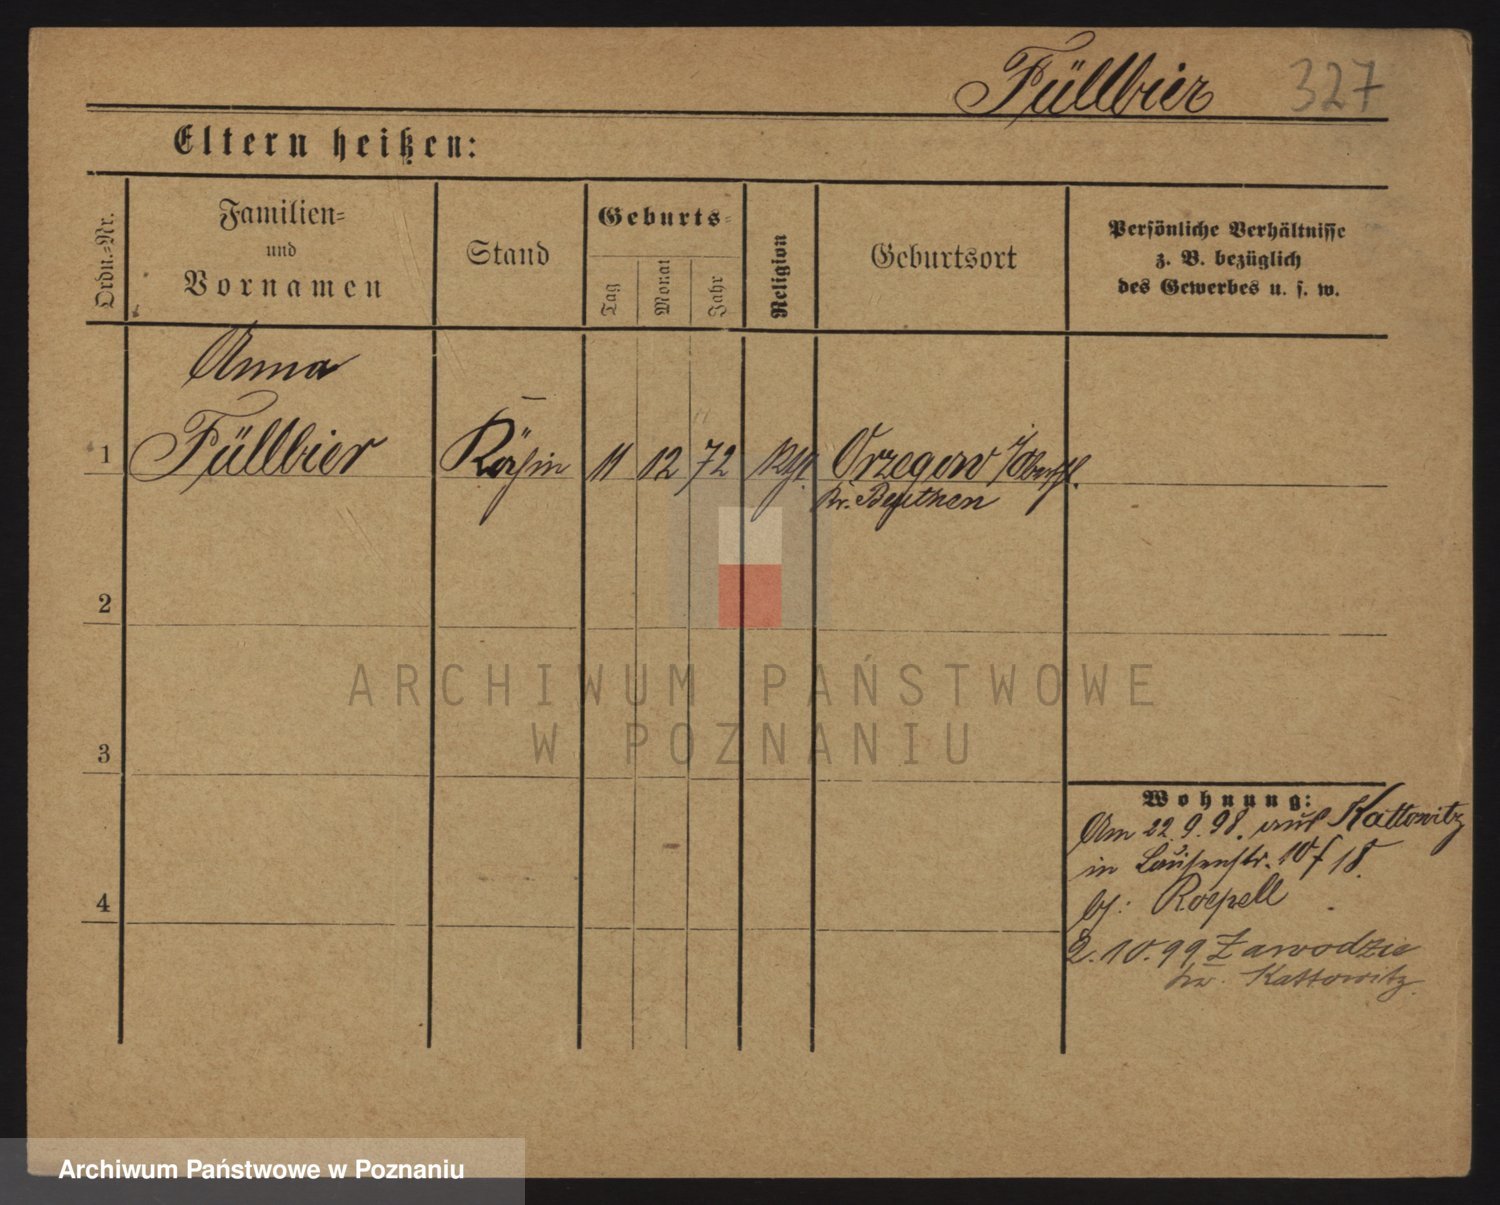 Füllbier 327
Eltern heißen:
Ordn.=Nr.
Familien=
und
Vornamen
Stand
Geburts=
Tag
Monat
Jahr
Religion
Geburtsort
Persönliche Verhältnisse
z. B. bezüglich
des Gewerbes u. s. w.
Anna
1 Füllbier Köchin 11 12 72 Orzegow
Kr. Beuthen
2
3
4
Wohnung:
Am 22.9.98. aus Kattowitz
in Louisenstr. 18.
bj: Roepell
2.10.99 Zawodzie
Kattowitz.
ARCHIWUM PAŃSTWOWE
W POZNANIU
Archiwum Państwowe w Poznaniu